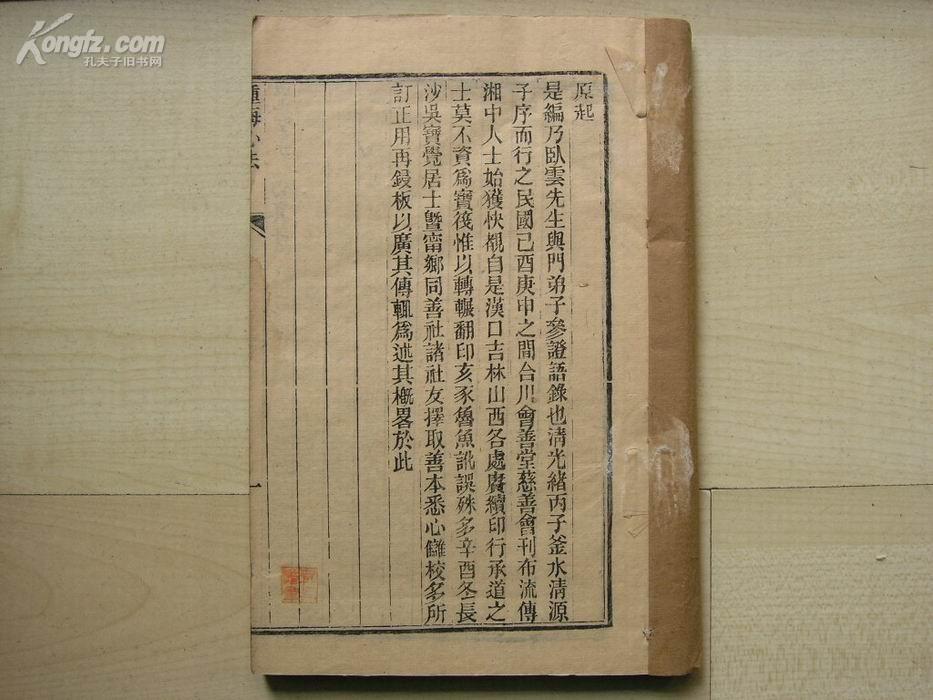 Kongfz.com
孔夫子旧书网
原起
是編乃臥雲先生與門弟子參證語錄也清光緒丙子釜水清源
子序而行之民國己酉庚申之間合川會善堂慈善會刊布流傳
湘中人士始獲快覩自是漢口吉林山西各處賡續印行承道之
士莫不資爲寶筏惟以轉輾翻印亥豕魯魚訛誤殊多辛酉冬長
沙吳寶覺居士曁甯鄉同善社諸社友擇取善本悉心讎校多所
訂正用再鋟板以廣其傳輒爲述其槪畧於此
心法
一